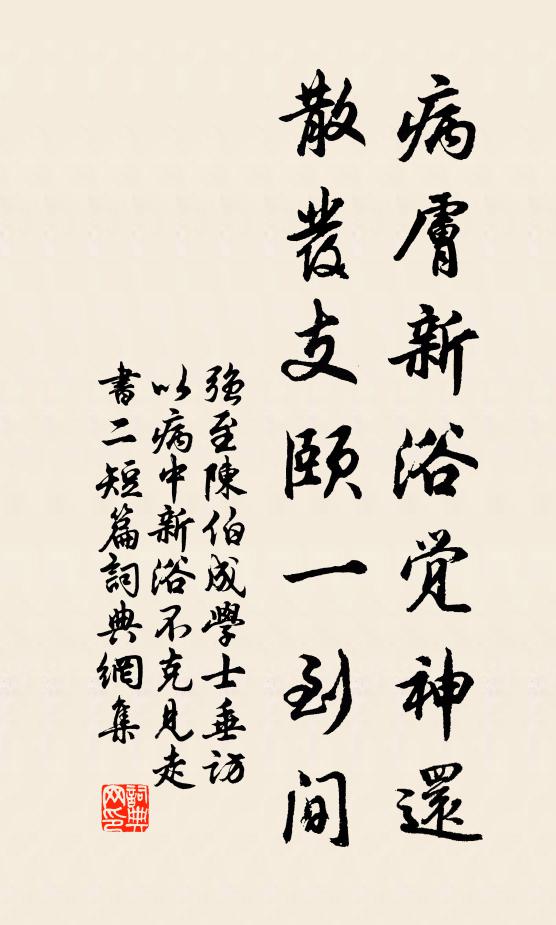 病膚新浴覺神還
散發支頤一到間
強至陳伯成學士垂訪
以病中新浴不克見走
書二短篇詞典網集
詞典网印